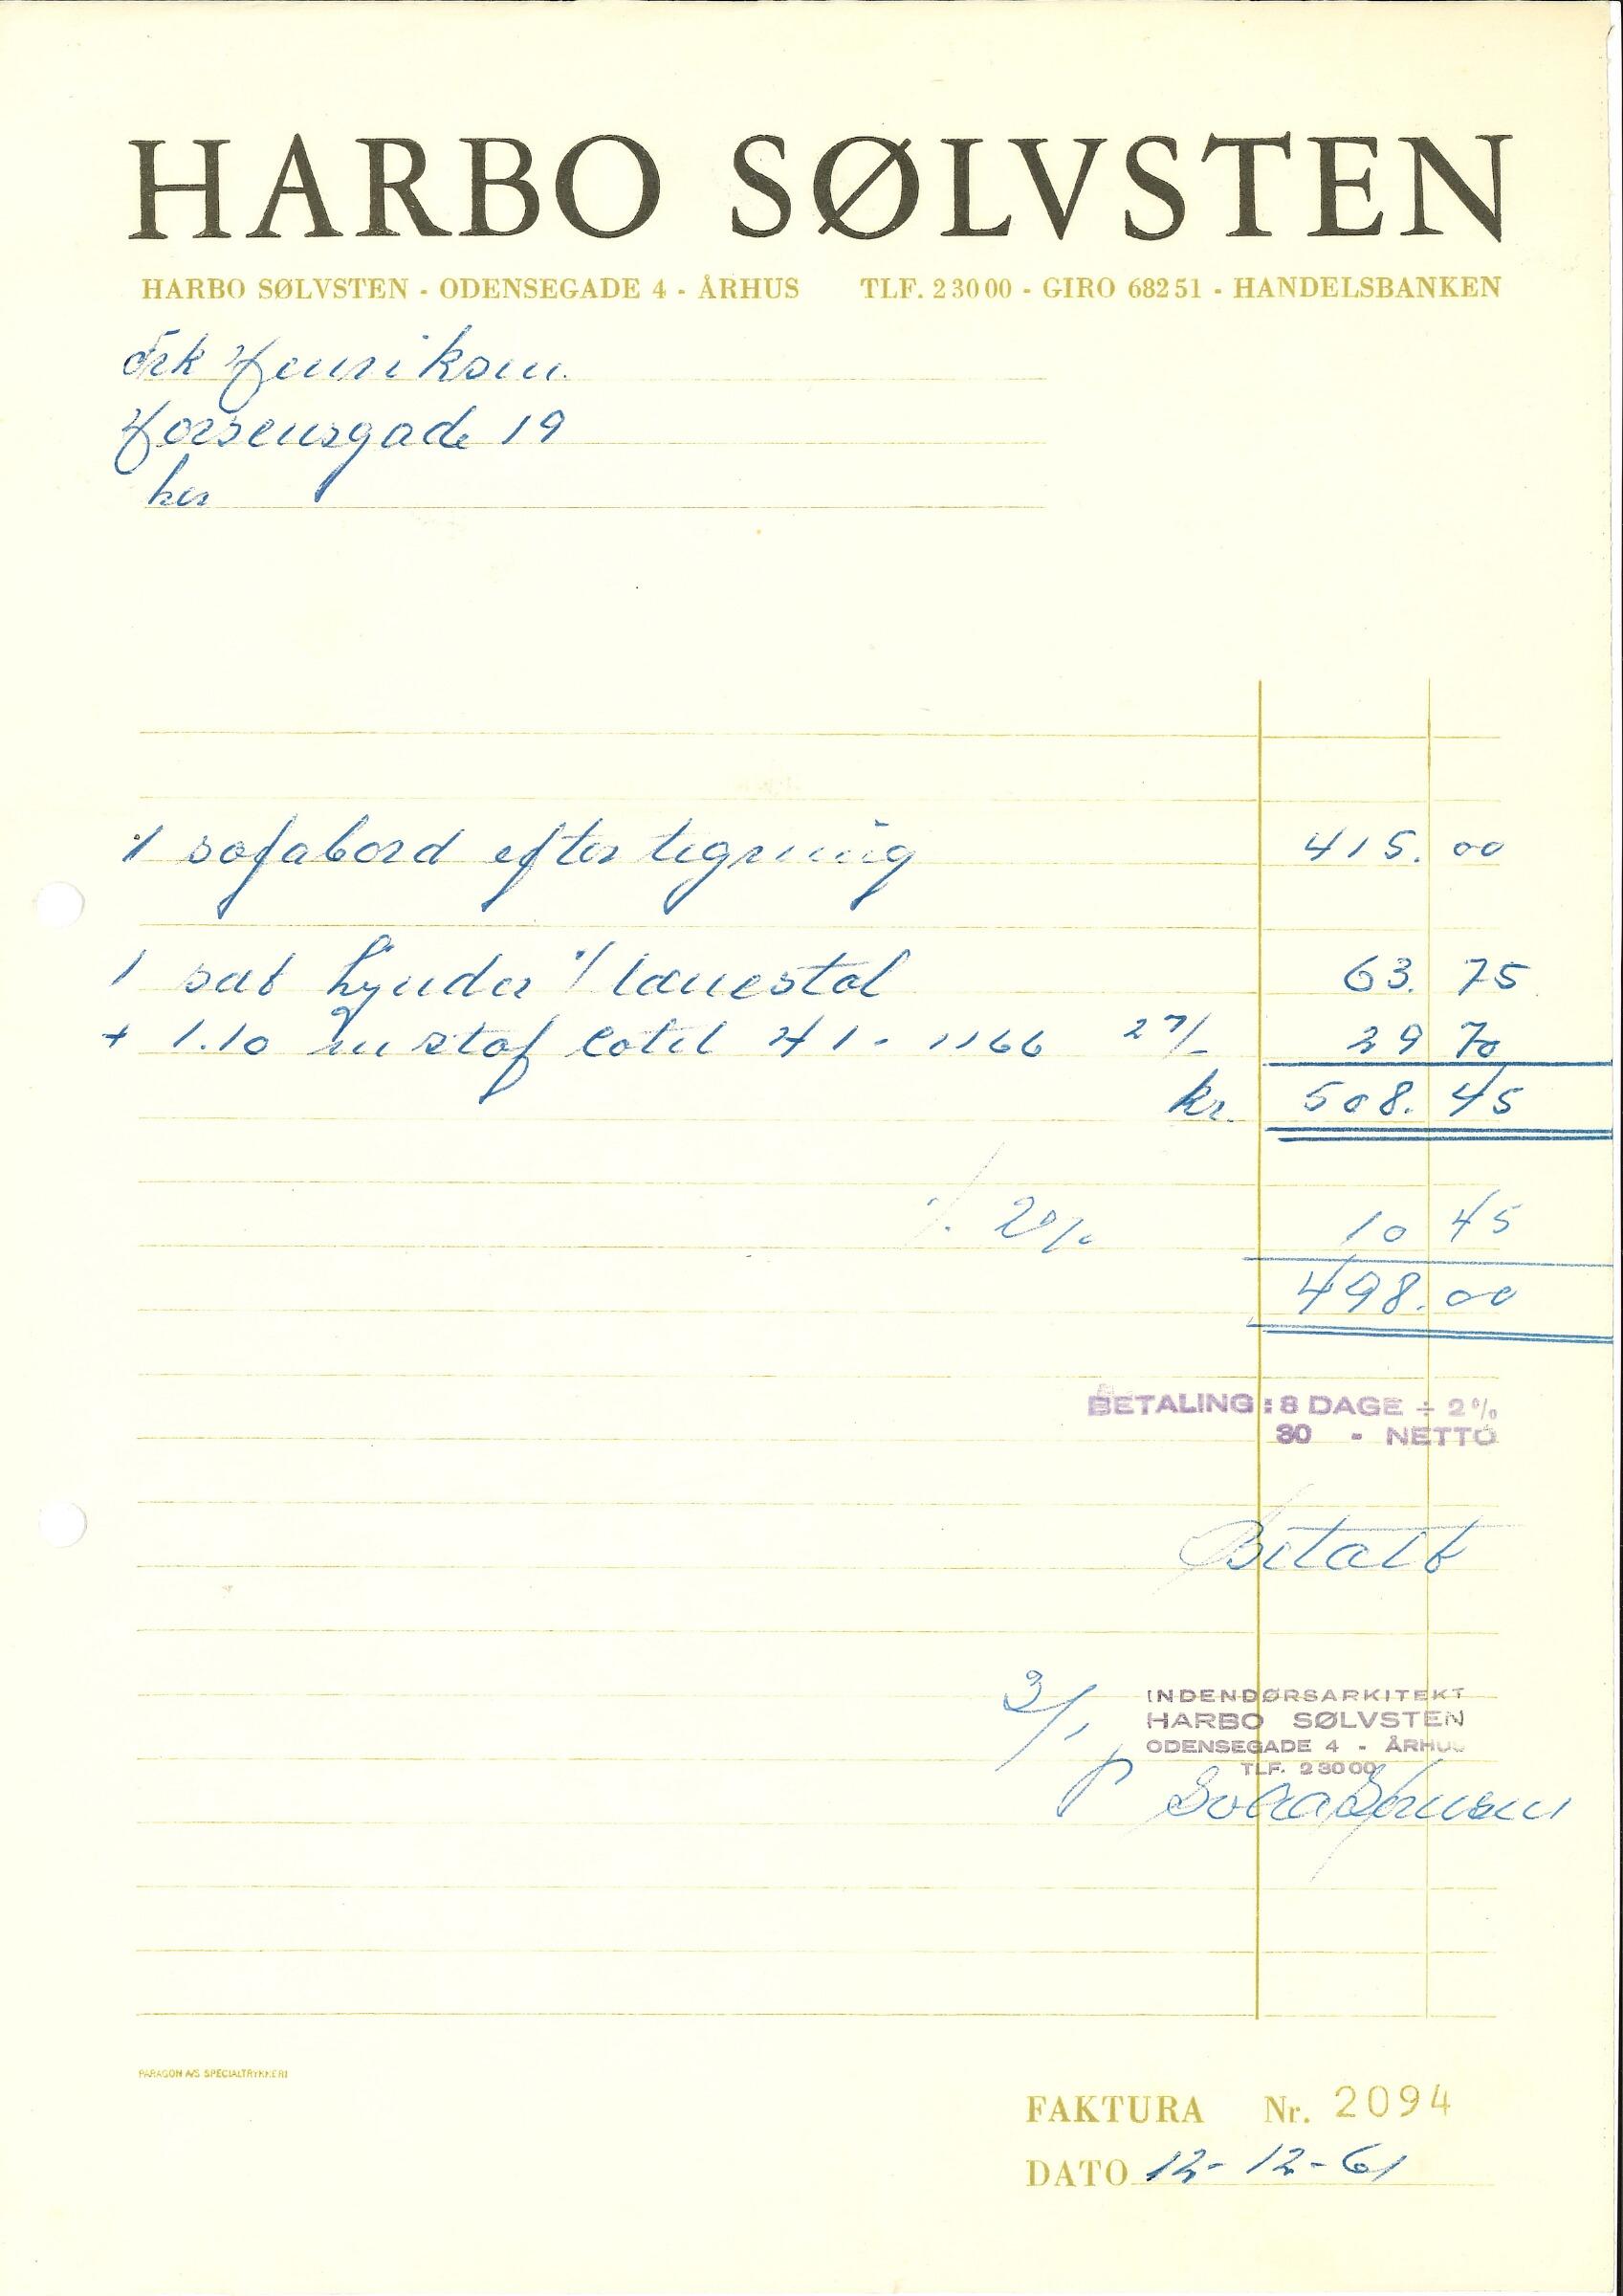 HARBO SØLVSTEN
HARBO SØLVSTEN - ODENSEGADE 4 - ÅRHUS TLF. 23000 - GIRO 68251 - HANDELSBANKEN
Frk Henriksen.
Horsensgade 19
her
1 sofabord efter tegning 415.00
1 sæt hynder t/ lænestol 63.75
+ 1.10 m stof Cotil H 1 - 1166 27/- 29 70
kr. 508.45
./. 2% 10 45
498.00
BETALING: 8 DAGE ÷ 2%
30 - NETTO
Betalt
3/1
INDENDØRSARKITEKT
HARBO SØLVSTEN
ODENSEGADE 4 - ÅRHUS
TLF. 23000
p
PARAGON A/S SPECIALTRYKKERI
FAKTURA Nr. 2094
DATO 12-12-61